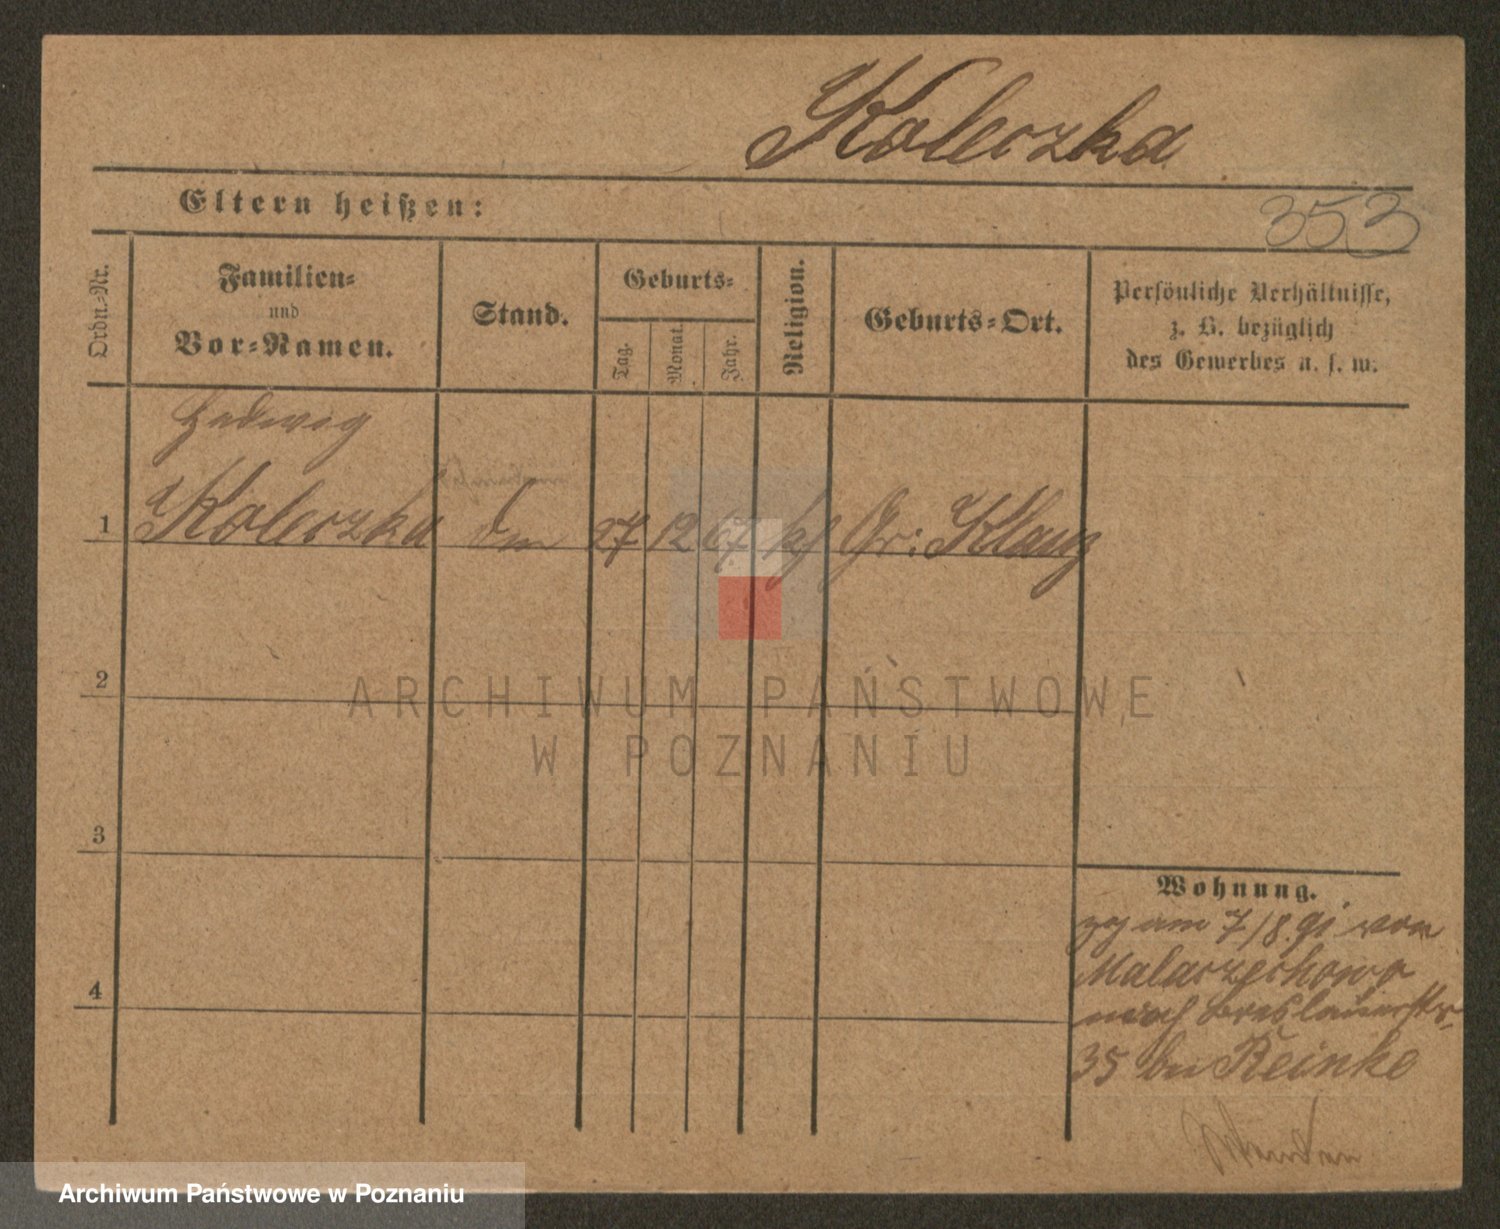 Koleczka
Eltern heißen:
353
Ordn.-Nr.
Familien-
und
Vor-Namen.
Stand.
Geburts-
Tag.
Monat.
Jahr.
Religion.
Geburts-Ort.
Persönliche Verhältnisse,
z. B. bezüglich
des Gewerbes u. s. w.
Hedwig
1 Koleczka 27 12 67 kf Gr:
2
3
4
Wohnung.
zg am 7/8. 91 von
nach Breslauerstr
35 bei Reinke
ARCHIWUM PAŃSTWOWE
W POZNANIU
Archiwum Państwowe w Poznaniu